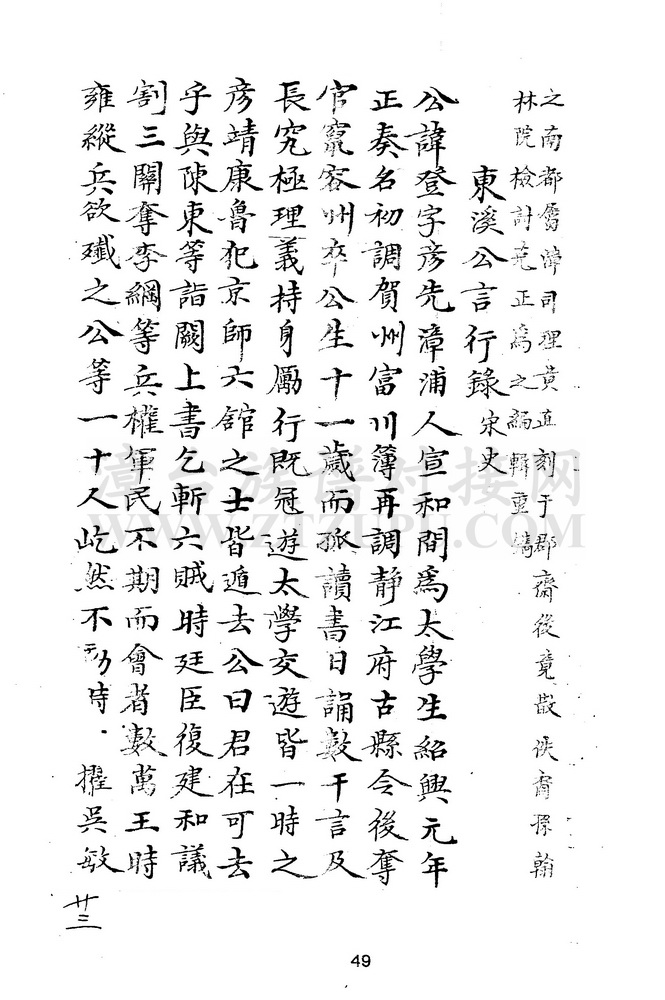 之南都屬漳司理黃直刻于郡齋後竟散佚裔孫翰
林院檢討元正為之編輯重鐫
東溪公言行錄 宋史
公諱登字彥先漳浦人宣和間為太學生紹興元年
正奏名初調賀州富川簿再調靜江府古縣令後奪
官竄容州卒公生十一歲而孤讀書日誦數千言及
長究極理義持身勵行既冠遊太學交遊皆一時之
彥靖康魯犯京師六舘之士皆遁去公曰君在可去
乎與陳東等詣闕上書乞斬六賊時廷臣復建和議
割三關奪李綱等兵權軍民不期而會者數萬王時
雍縱兵欲殲之公等一十人屹然不動時 擢吳敏
廿三
49
漳台族譜对接网
WWW.ZTZUPU.COM